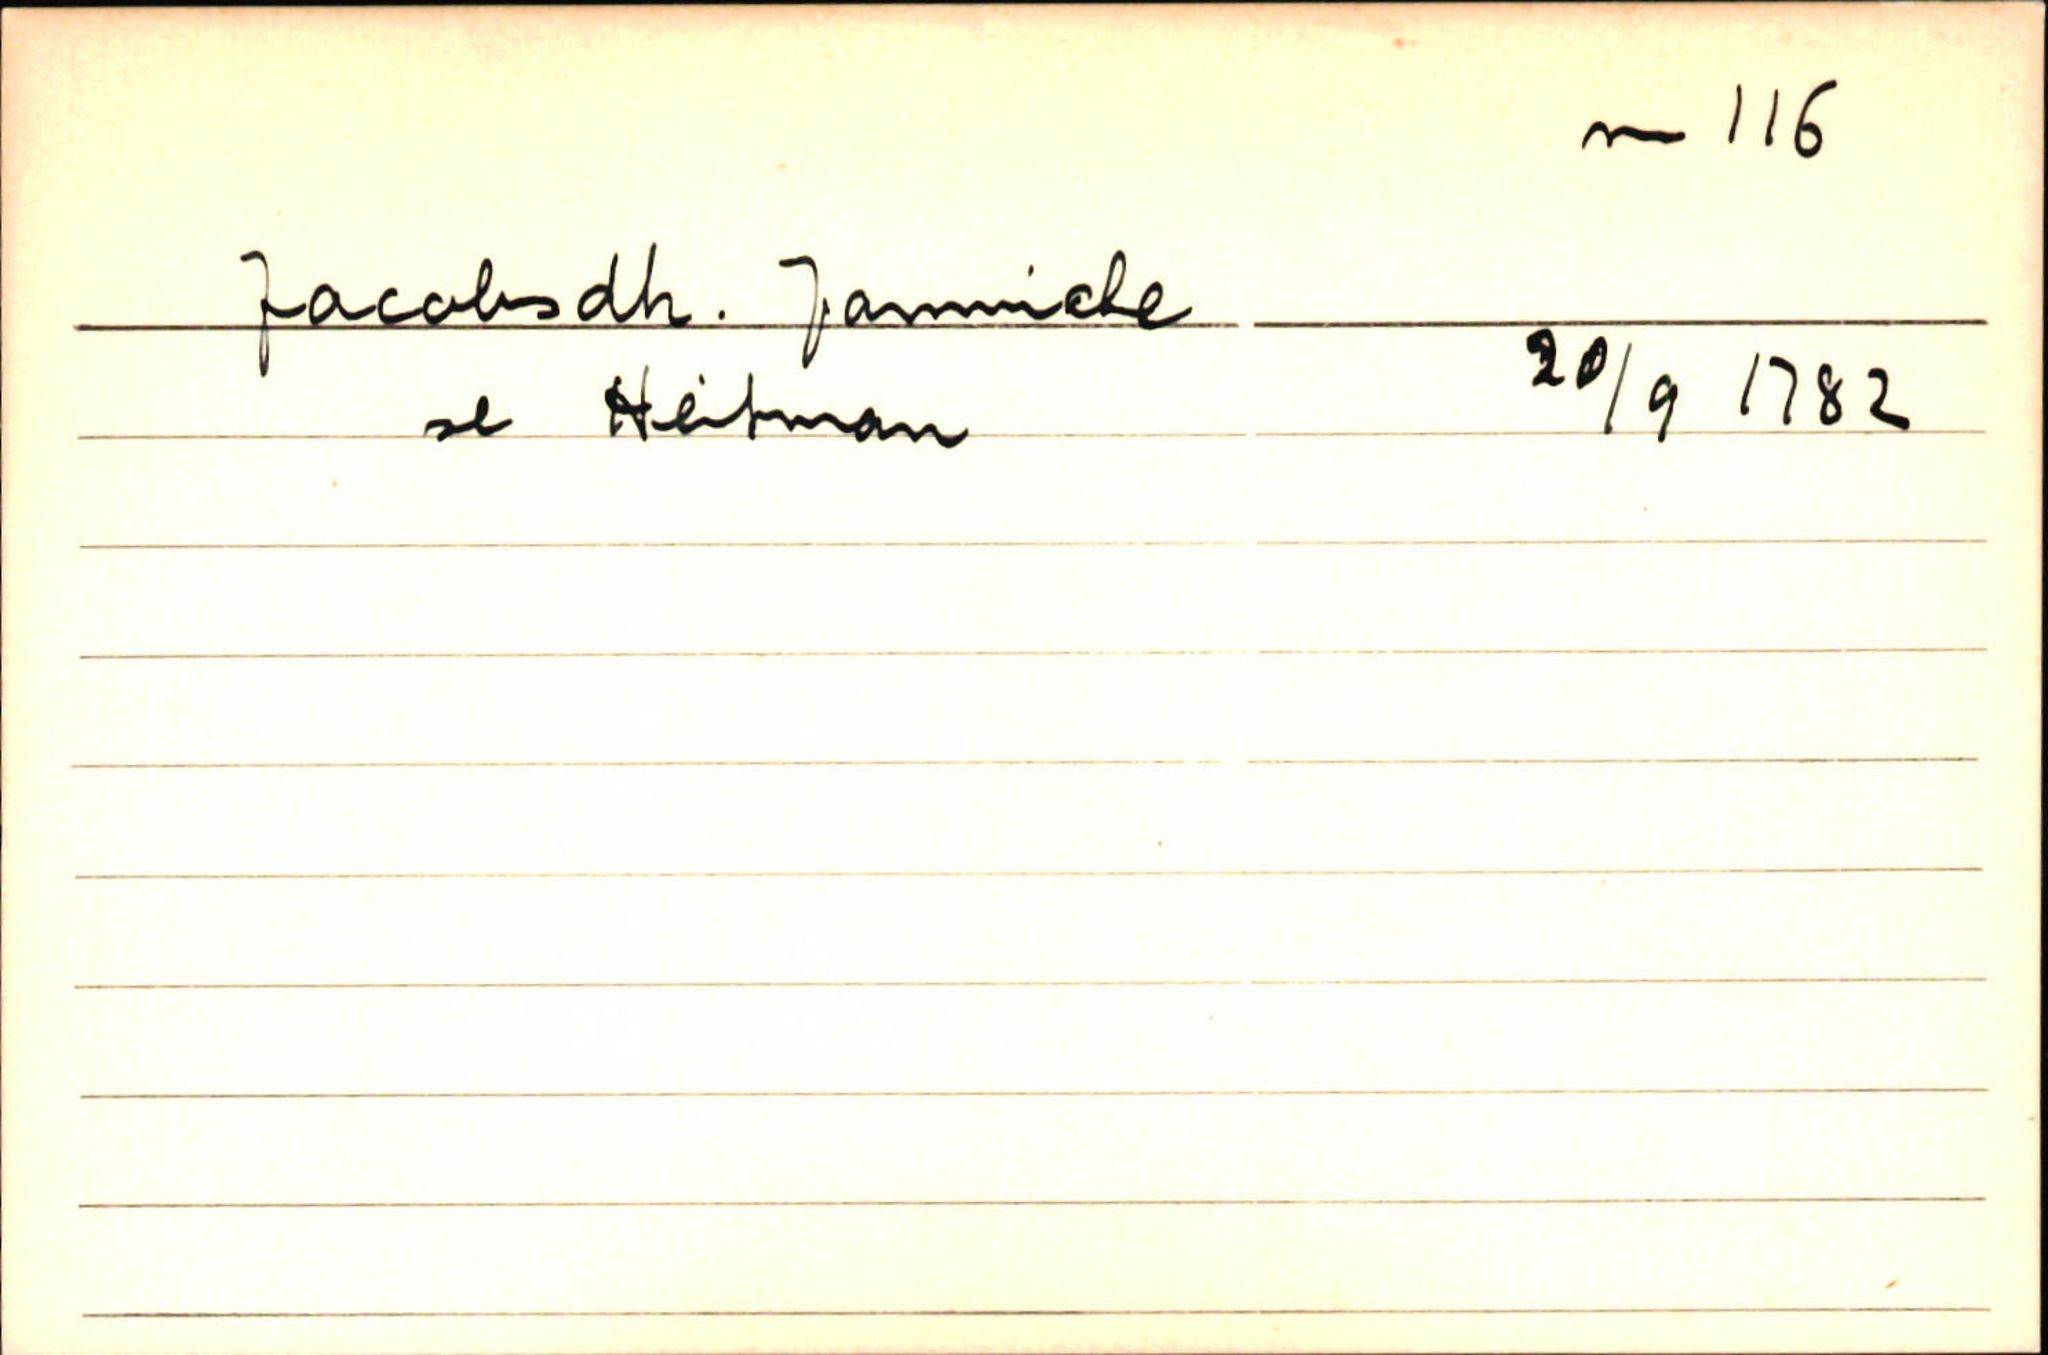 m 116
Jacobsdh. Jannicke
se Heitman 20/9 1782